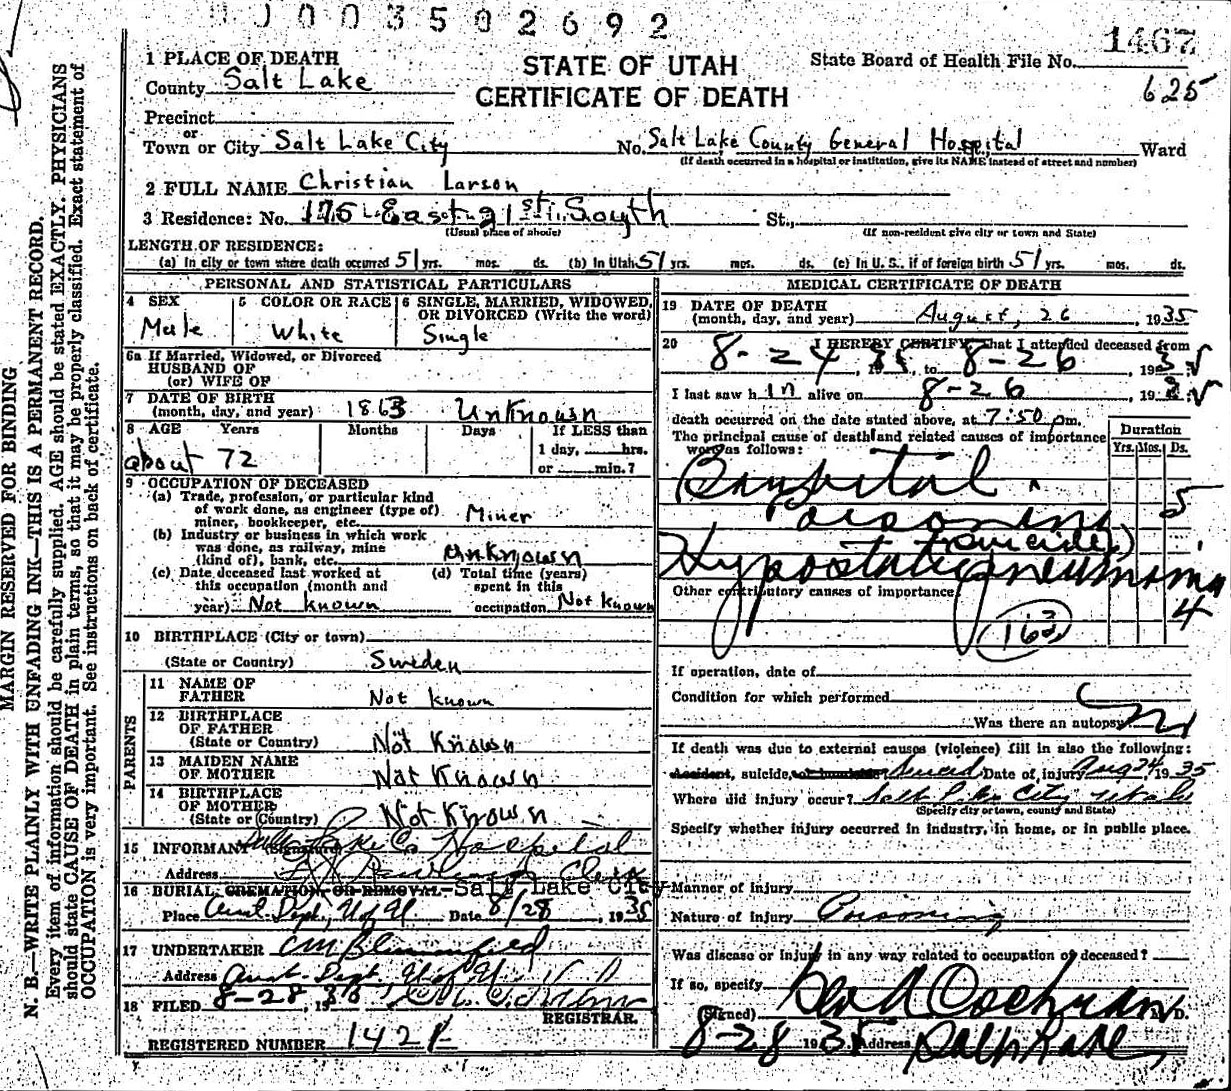 0003502692
1467
625
STATE OF UTAH
CERTIFICATE OF DEATH
State Board of Health File No.
1 PLACE OF DEATH
County Salt Lake
Precinct
or
Town or City Salt Lake City No. Salt Lake County General Hospital Ward
(If death occurred in a hospital or institution, give its NAME instead of street and number)
2 FULL NAME Christian Larson
3 Residence: No. 175 East 21st South St.,
(Usual place of abode) (If non-resident give city or town and State)
LENGTH OF RESIDENCE:
(a) In city or town where death occurred 51 yrs. mos. ds. (b) In Utah 51 yrs. mos. ds. (c) In U. S., if of foreign birth 51 yrs. mos. ds.
PERSONAL AND STATISTICAL PARTICULARS
4 SEX
Male
5 COLOR OR RACE
White
6 SINGLE, MARRIED, WIDOWED,
OR DIVORCED (Write the word)
Single
6a If Married, Widowed, or Divorced
HUSBAND OF
(or) WIFE OF
7 DATE OF BIRTH
(month, day, and year) 1863 Unknown
8 AGE Years Months Days If LESS than
1 day, hrs.
or min.?
about 72
9 OCCUPATION OF DECEASED
(a) Trade, profession, or particular kind
of work done, as engineer (type of)
miner, bookkeeper, etc. Miner
(b) Industry or business in which work
was done, as railway, mine
(kind of), bank, etc. Unknown
(c) Date deceased last worked at
this occupation (month and
year) Not known
(d) Total time (years)
spent in this
occupation Not known
10 BIRTHPLACE (City or town)
(State or Country) Sweden
PARENTS
11 NAME OF
FATHER Not known
12 BIRTHPLACE
OF FATHER
(State or Country) Not Known
13 MAIDEN NAME
OF MOTHER Not Known
14 BIRTHPLACE
OF MOTHER
(State or Country) Not Known
15 INFORMANT Salt Lake Co Hospital
Address Clerk
16 BURIAL, CREMATION, OR REMOVAL Salt Lake City
Place Anat. Dept., U of U Date 8/28, 1935
17 UNDERTAKER
Address Anat. Dept. U of U
18 FILED 8-28, 19
REGISTRAR.
REGISTERED NUMBER 1421
MEDICAL CERTIFICATE OF DEATH
19 DATE OF DEATH
(month, day, and year) August, 26, 1935
20 I HEREBY CERTIFY, That I attended deceased from
8-24, 1935, to 8-26, 193
I last saw h im alive on 8-26, 193
death occurred on the date stated above, at 7:50 pm.
The principal cause of death and related causes of importance
were as follows:
Duration
Yrs. Mos. Ds.
Poisoning 5
(suicide)
Hypostatic pneumonia
4
Other contributory causes of importance:
If operation, date of
Condition for which performed
Was there an autopsy
If death was due to external causes (violence) fill in also the following:
Accident, suicide, or homicide Suicid Date of injury Aug 24, 1935
Where did injury occur? Salt Lake City Utah
(Specify city or town, county and State)
Specify whether injury occurred in industry, in home, or in public place.
Manner of injury
Nature of injury Poisoning
Was disease or injury in any way related to occupation of deceased?
If so, specify
(Signed) Cochran M. D.
8-28 1935 Address Salt Lake
MARGIN RESERVED FOR BINDING
N. B.—WRITE PLAINLY WITH UNFADING INK—THIS IS A PERMANENT RECORD.
Every item of information should be carefully supplied. AGE should be stated EXACTLY. PHYSICIANS
should state CAUSE OF DEATH in plain terms, so that it may be properly classified. Exact statement of
OCCUPATION is very important. See instructions on back of certificate.